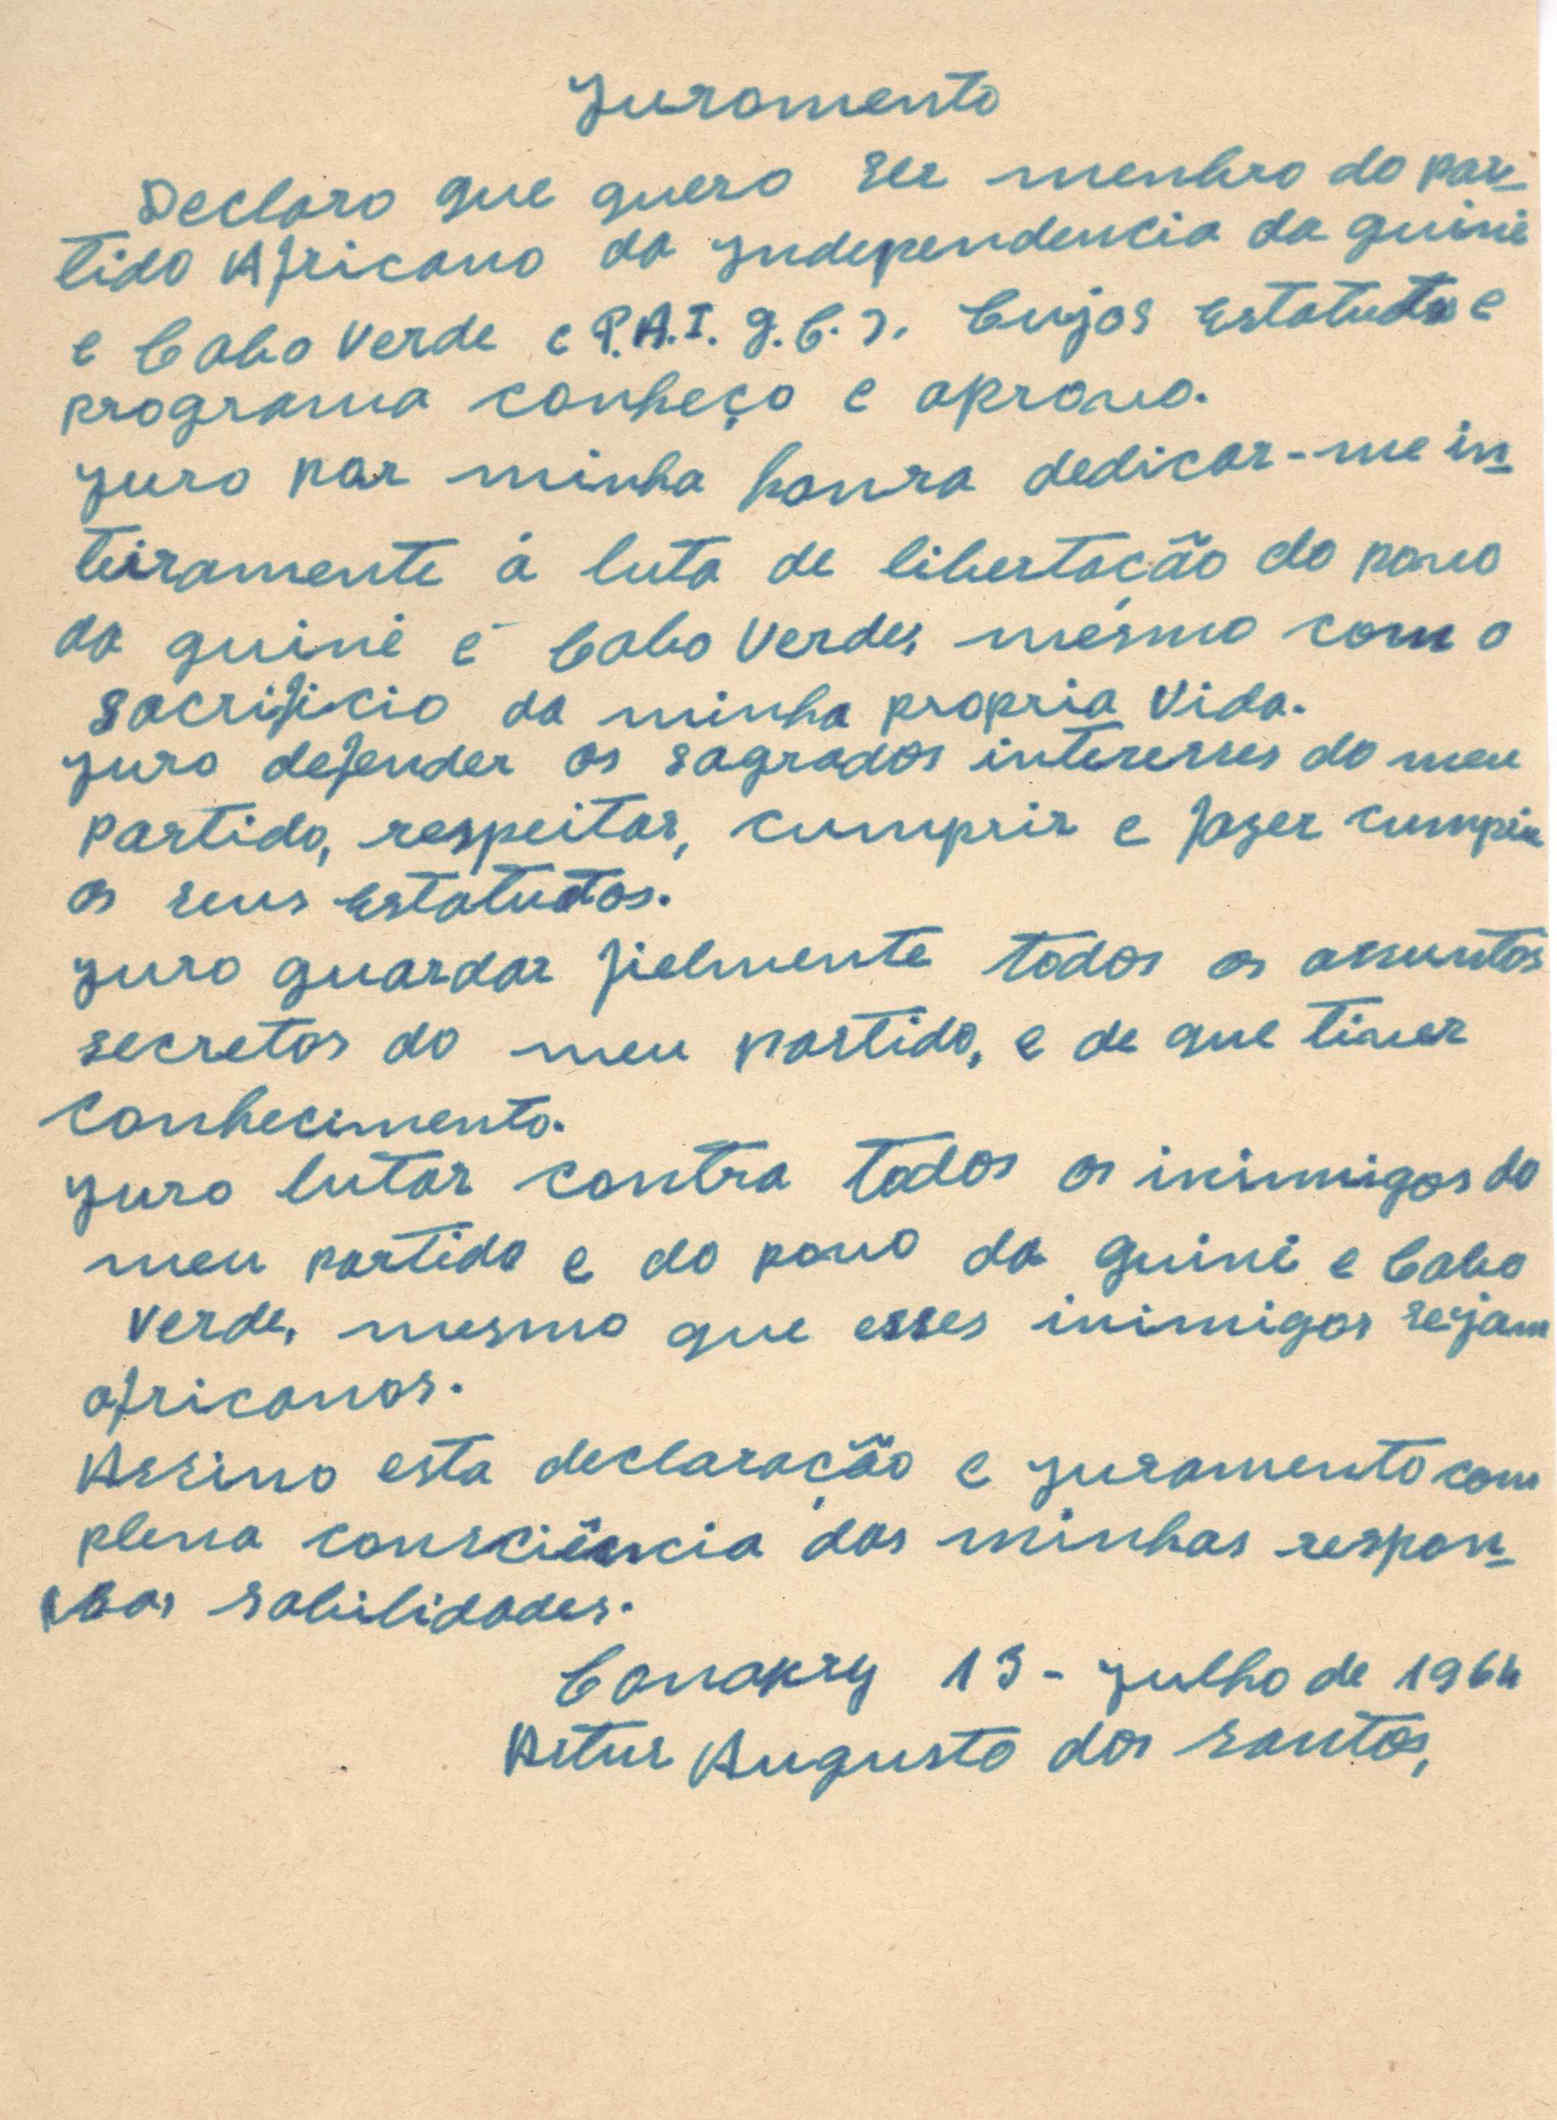 Juramento
Declaro que quero ser menbro do par-
tido Africano da Independencia da guiné
e Cabo Verde (P.A.I.g.C.). Cujos Estatutos e
programa conheço e aprovo.
Juro por minha honra dedicar-me in-
teiramente á luta de libertação do povo
da guiné e Cabo Verde, mésmo com o
sacrificio da minha propria Vida.
Juro defender os sagrados interesses do meu
Partido, respeitar, cumprir e fazer cumprir
os seus Estatutos.
Juro guardar fielmente todos os assuntos
secretos do meu partido, e de que tiver
conhecimento.
Juro lutar contra todos os inimigos do
meu partido e do povo da Guiné e Cabo
Verde, mesmo que esses inimigos sejam
africanos.
Assino esta declaração e juramento com
plena consciência das minhas respon-
sabilidades.
Conakry 13 - Julho de 1964
Artur Augusto dos Santos,